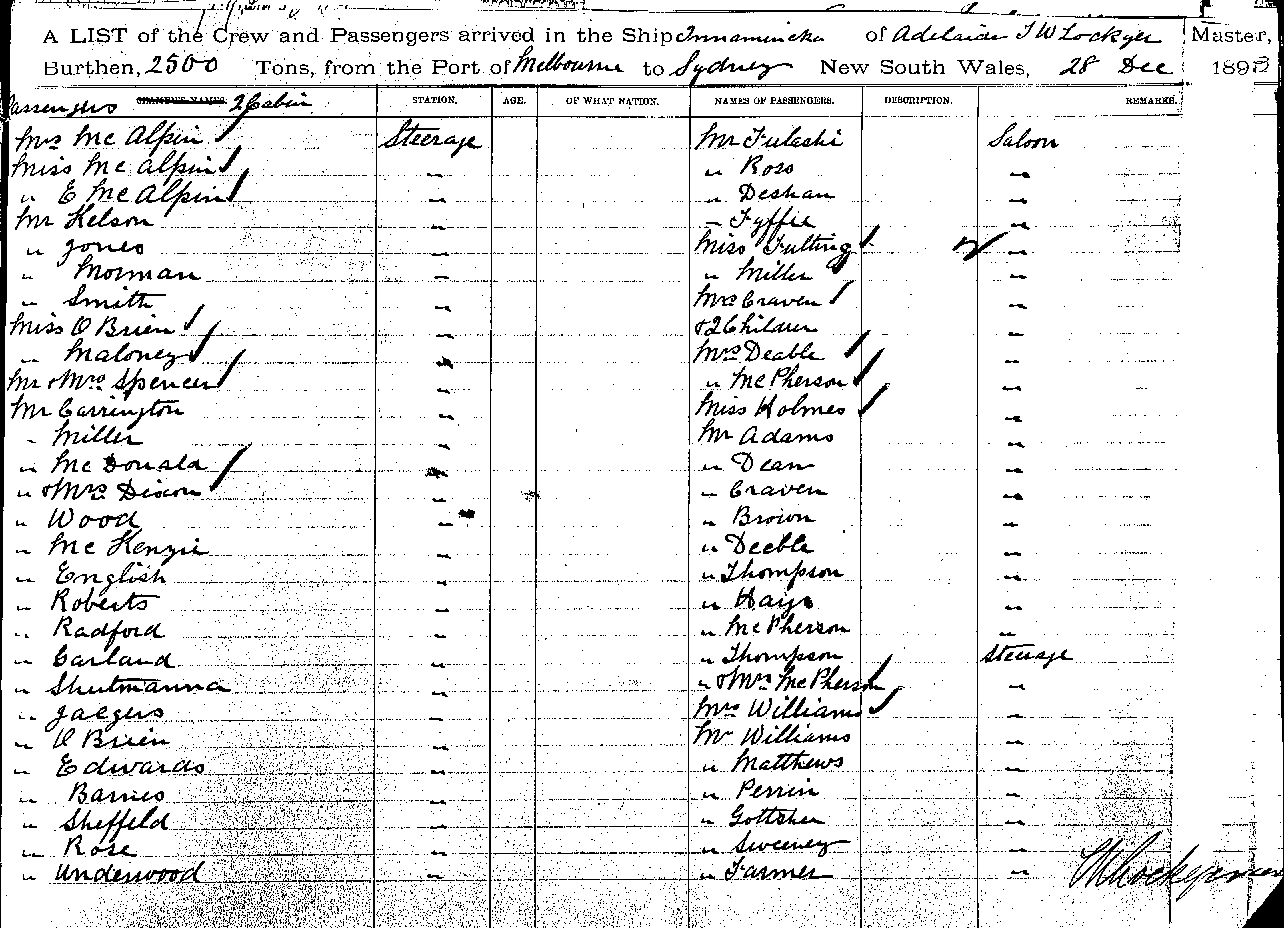 A LIST of the Crew and Passengers arrived in the Ship Innamincka of Adelaide T W Lockyer Master,
Burthen, 2500 Tons, from the Port of Melbourne to Sydney New South Wales, 28 Dec 1893
Passengers 2 Cabin STATION. AGE. OF WHAT NATION. NAMES OF PASSENGERS. DESCRIPTION. REMARKS.
Mrs McAlpin Steerage Mr Saloon
Miss McAlpin " " Ross "
" E McAlpin " " Deshan "
Mr Kelson " " Fyffee "
" Jones " Miss "
" Morman " " Miller "
" Smith " Mrs Craven "
Miss O Brien " & 2 Children "
" Maloney " Mrs Deable "
Mr & Mrs Spencer " " McPherson "
Mr Carrington " Miss Holmes "
" Miller " Mr Adams "
" McDonald " " Dean "
" & Mrs Dixon " " Craven "
" Wood " " Brown "
" McKenzie " " Deeble "
" English " " Thompson "
" Roberts " " Hays "
" Radford " " McPherson "
" Carland " " Thompson Steerage
" Shutmanna " " & Mrs McPherson "
" Jaegers " Mrs Williams "
" O Brien " Mr Williams "
" Edwards " " Matthews "
" Barnes " " Perrin "
" Sheffeld " " Gottsher "
" Rose " " Sweeney "
" Underwood " " Farmer "